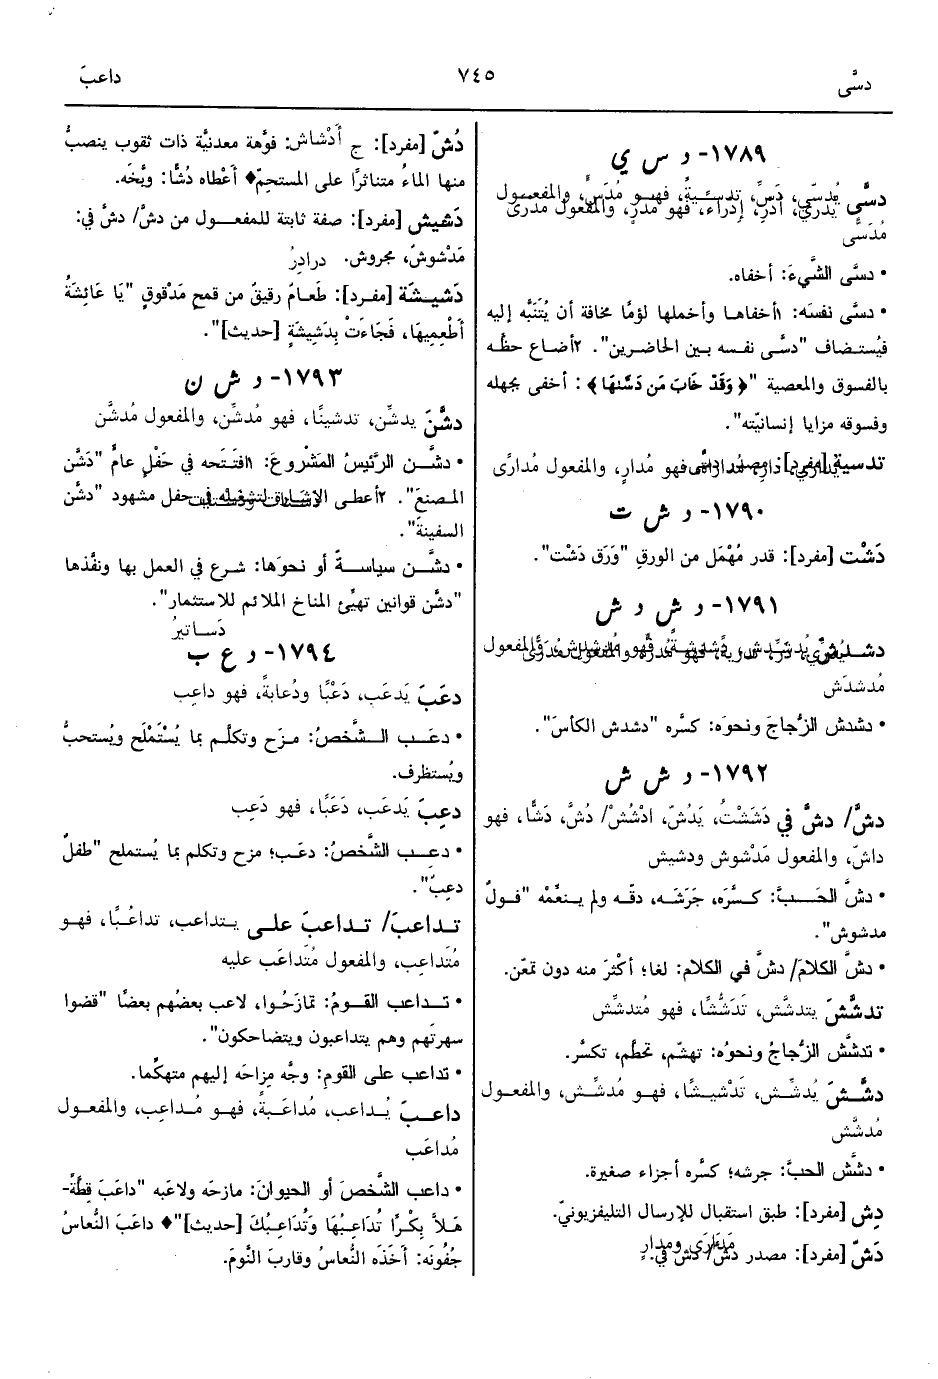 دسَّى
٧٤٥
داعبَ
١٧٨٩- د س ي
دسَّى يُدسّي، دَسِّ، تدسيَةً، فهو مُدَسٍّ، والمفعول
مُدَسًّى
• دسَّى الشَّيءَ: أخفاه.
• دسَّى نفسَه: ١أخفاها وأخملها لؤمًا مخافة أن يُتَنَبَّه إليه
فيُستضاف "دسَّى نفسه بين الحاضرين". ٢أضاع حظَّه
بالفسوق والمعصية "﴿وَقَدْ خَابَ مَن دَسَّىٰهَا﴾: أخفى بجهله
وفسوقه مزايا إنسانيّته".
تدسية [مفرد]: مصدر دسَّى.
١٧٩٠- د ش ت
دَشْت [مفرد]: قدر مُهْمَل من الورق "وَرَق دَشْت".
١٧٩١- د ش د ش
دشدشَ يُدشدش، دَشدشةً، فهو مُدشدِش، والمفعول
مُدشدَش
• دشدش الزُّجاجَ ونحوَه: كسَّره "دشدش الكأسَ".
١٧٩٢- د ش ش
دشَّ/ دشَّ في دَشَشْتُ، يَدُشّ، ادْشُشْ/ دُشَّ، دَشًّا، فهو
داشّ، والمفعول مَدْشوش ودشيش
• دشَّ الحَبَّ: كسَّره، جَرَشَه، دقّه ولم ينعِّمْه "فولٌ
مدشوش".
• دشَّ الكلامَ/ دشَّ في الكلام: لغا؛ أكثرَ منه دون تمعّن.
تدشَّشَ يتدشَّش، تَدَشُّشًا، فهو مُتدشِّش
• تدشَّش الزُّجاجُ ونحوُه: تهشّم، تحطّم، تكسَّر.
دشَّشَ يُدشِّش، تَدْشيشًا، فهو مُدشِّش، والمفعول
مُدشَّش
• دشَّش الحبَّ: جرشه؛ كسَّره أجزاء صغيرة.
دِش [مفرد]: طبق استقبال للإرسال التليفزيونيّ.
دَشّ [مفرد]: مصدر دشَّ/ دشَّ في.
دُشّ [مفرد]: ج أَدْشاش: فوّهة معدنيَّة ذات ثقوب ينصبُّ
منها الماءُ متناثرًا على المستحِمّ♦ أعْطاه دُشًّا: وبَّخَه.
دَشيش [مفرد]: صفة ثابتة للمفعول من دشَّ/ دشَّ في:
مَدْشوش، مجروش. درادِرُ
دَشيشَة [مفرد]: طَعامٌ رقيقٌ من قمحٍ مَدْقوقٍ "يَا عَائِشَةُ
أَطْعِمِيهَا، فَجَاءَتْ بِدَشِيشَةٍ [حديث]".
١٧٩٣- د ش ن
دشَّنَ يدشِّن، تدشينًا، فهو مُدشِّن، والمفعول مُدشَّن
• دشَّن الرَّئيسُ المشروعَ: ١افتتحه في حَفْلٍ عامٍّ "دَشَّن
المصنعَ". ٢أعطى الإشارة لتشغيله في حفل مشهود "دشَّن
السفينة".
• دشَّن سياسةً أو نحوَها: شرع في العمل بها ونفَّذها
"دشَّن قوانين تهيِّئ المناخ الملائم للاستثمار".
دَساتيرُ
١٧٩٤- د ع ب
دعَبَ يَدعَب، دَعْبًا ودُعابةً، فهو داعِب
• دعَب الشَّخصُ: مزَح وتكلَّم بما يُسْتَمْلَح ويُستحبُّ
ويُستظرف.
دعِبَ يَدعَب، دَعَبًا، فهو دَعِب
• دعِب الشَّخصُ: دعَب؛ مزح وتكلم بما يُستملح "طفلٌ
دعِبٌ".
تداعبَ/ تداعبَ على يتداعب، تداعُبًا، فهو
مُتَداعِب، والمفعول مُتَداعَب عليه
• تداعب القومُ: تمازَحُوا، لاعب بعضُهم بعضًا "قضوا
سهرتَهم وهم يتداعبون ويتضاحكون".
• تداعب على القوم: وجَّه مِزاحَه إليهم متهكِّما.
داعبَ يُداعب، مُداعَبةً، فهو مُداعِب، والمفعول
مُداعَب
• داعب الشَّخصَ أو الحيوانَ: مازحَه ولاعبَه "داعَبَ قِطَّةً-
هَلاَّ بِكْرًا تُدَاعِبُهَا وَتُدَاعِبُكَ [حديث]"♦ داعَبَ النُّعاسُ
جُفُونَه: أخَذَه النُّعاسُ وقاربَ النَّومَ.